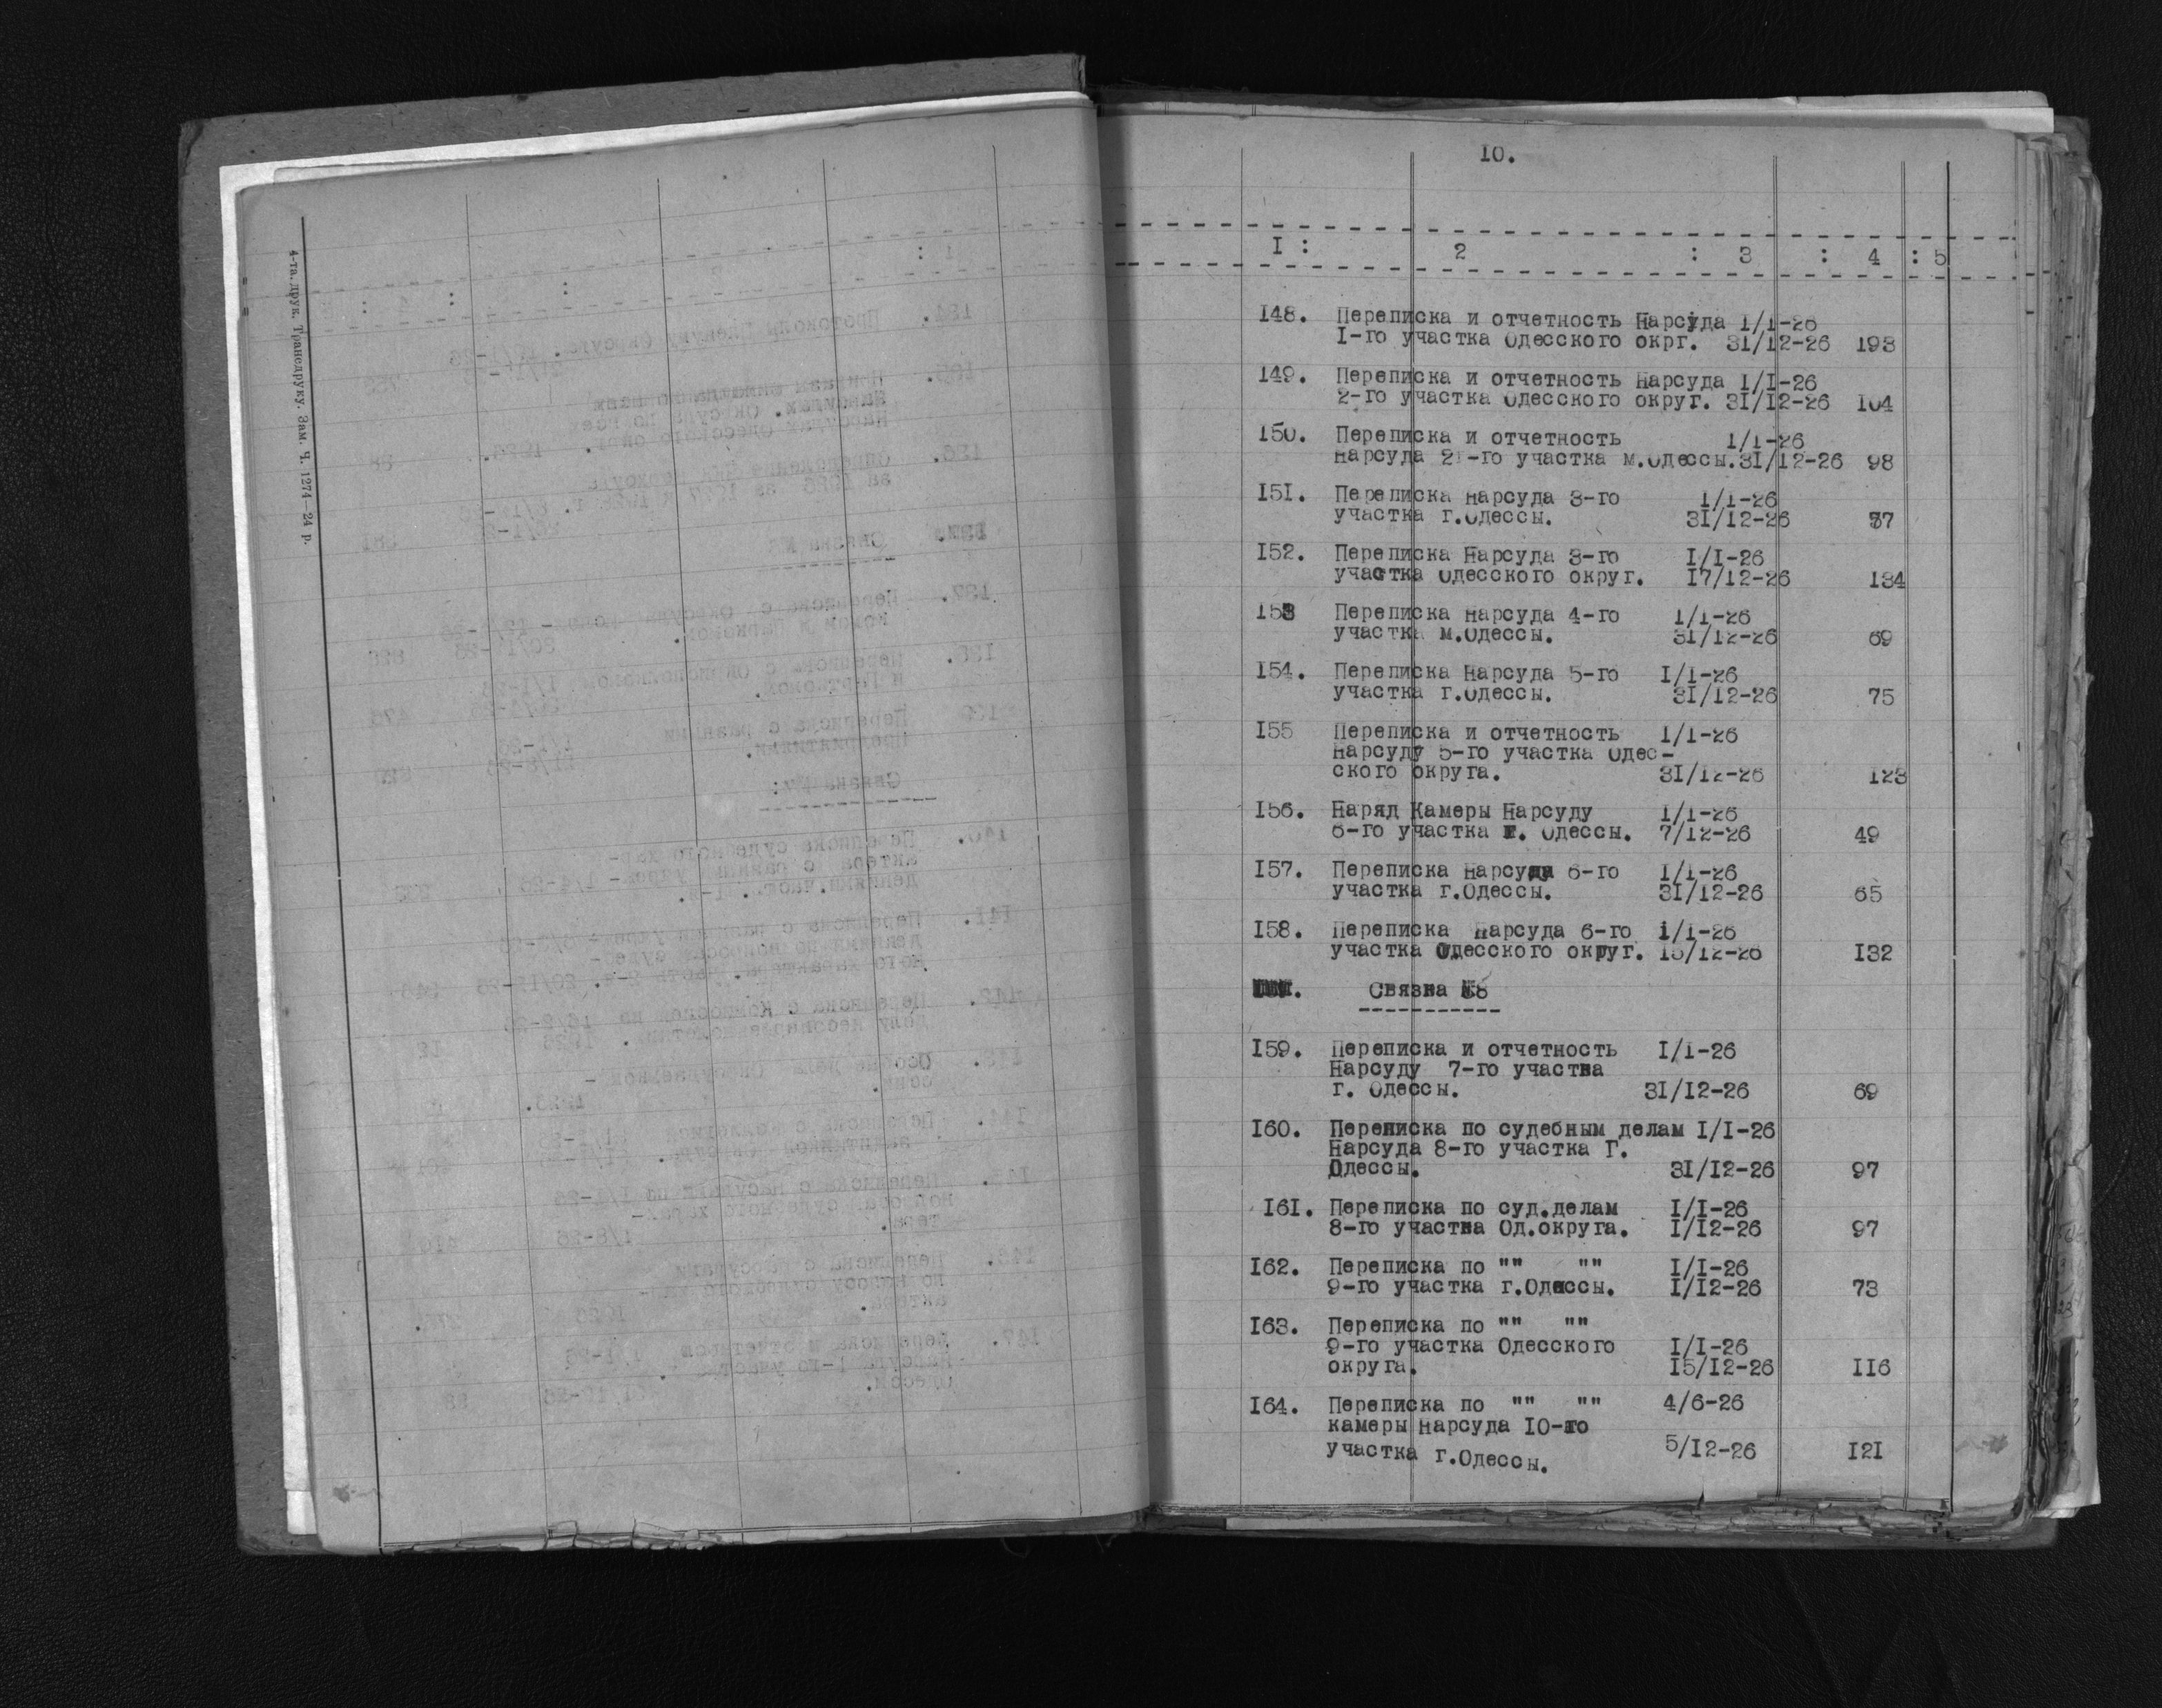 4-та друк. Трансдруку. Зам. Ч. 1274—24 р.
10.
I : 2 : 3 : 4 : 5
I48. Переписка и отчетность Нарсуда I/I-26
I-го участка Одесского окрг. 3I/I2-26 193
I49. Переписка и отчетность Нарсуда I/I-26
2-го участка Одесского округ. 3I/I2-26 I04
I50. Переписка и отчетность I/I-26
Нарсуда 2-го участка м.Одессы.3I/I2-26 98
I5I. Переписка Нарсуда 3-го I/I-26
участка г.Одессы. 3I/I2-26 77
I52. Переписка Нарсуда 3-го I/I-26
участка Одесского округ. I7/I2-26 I34
I53 Переписка Нарсуда 4-го I/I-26
участка м.Одессы. 3I/I2-26 69
I54. Переписка Нарсуда 5-го I/I-26
участка г.Одессы. 3I/I2-26 75
I55 Переписка и отчетность I/I-26
Нарсуду 5-го участка Одес-
ского округа. 3I/I2-26 I23
I56. Наряд Камеры Нарсуду I/I-26
6-го участка г. Одессы. 7/I2-26 49
I57. Переписка Нарсуда 6-го I/I-26
участка г.Одессы. 3I/I2-26 65
I58. Переписка Нарсуда 6-го I/I-26
участка Одесского округ. I5/I2-26 I32
Связка №8
I59. Переписка и отчетность I/I-26
Нарсуду 7-го участва
г. Одессы. 3I/I2-26 69
I60. Переписка по судебным делам I/I-26
Нарсуда 8-го участка Г.
Одессы. 3I/I2-26 97
I6I. Переписка по суд.делам I/I-26
8-го участва Од.округа. I/I2-26 97
I62. Переписка по "" "" I/I-26
9-го участка г.Одессы. I/I2-26 73
I63. Переписка по "" ""
9-го участка Одесского I/I-26
округа. I5/I2-26 II6
I64. Переписка по "" "" 4/6-26
камеры Нарсуда I0-го
участка г.Одессы. 5/I2-26 I2I